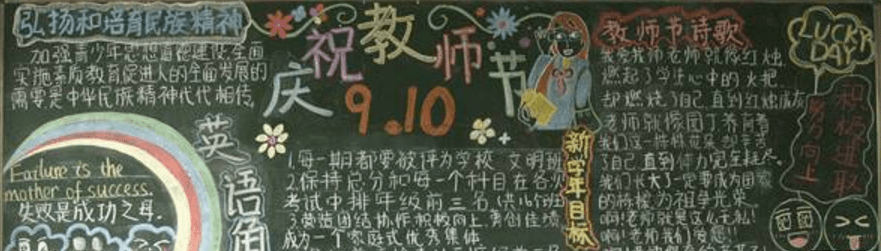 弘扬和培育民族精神
加强青少年思想道德建设,全面
实施素质教育促进人的全面发展的
需要是中华民族精神代代相传
英语角
Failure is the
mother of success.
失败是成功之母.
庆祝教师节
9.10
1.每一期都要被评为学校 文明班
2.保持总分和每一个科目在各次
考试中排年级前三名(共16个班
3.营造团结协作积极向上勇创佳绩
成为一个家庭式优秀集体
新学年目标
教师节诗歌
我爱我师老师就像红烛
燃起了学生心中的火把
却燃烧了自己直到红烛成灰
老师就像园丁养育着
我们这一样样花朵
了自己直到
我们长大了一定要成为国家
的栋梁为祖争光荣
啊!老师就是这么无私!
啊!老师我们爱您!
LUCKY
DAY
积极进取
努力向上